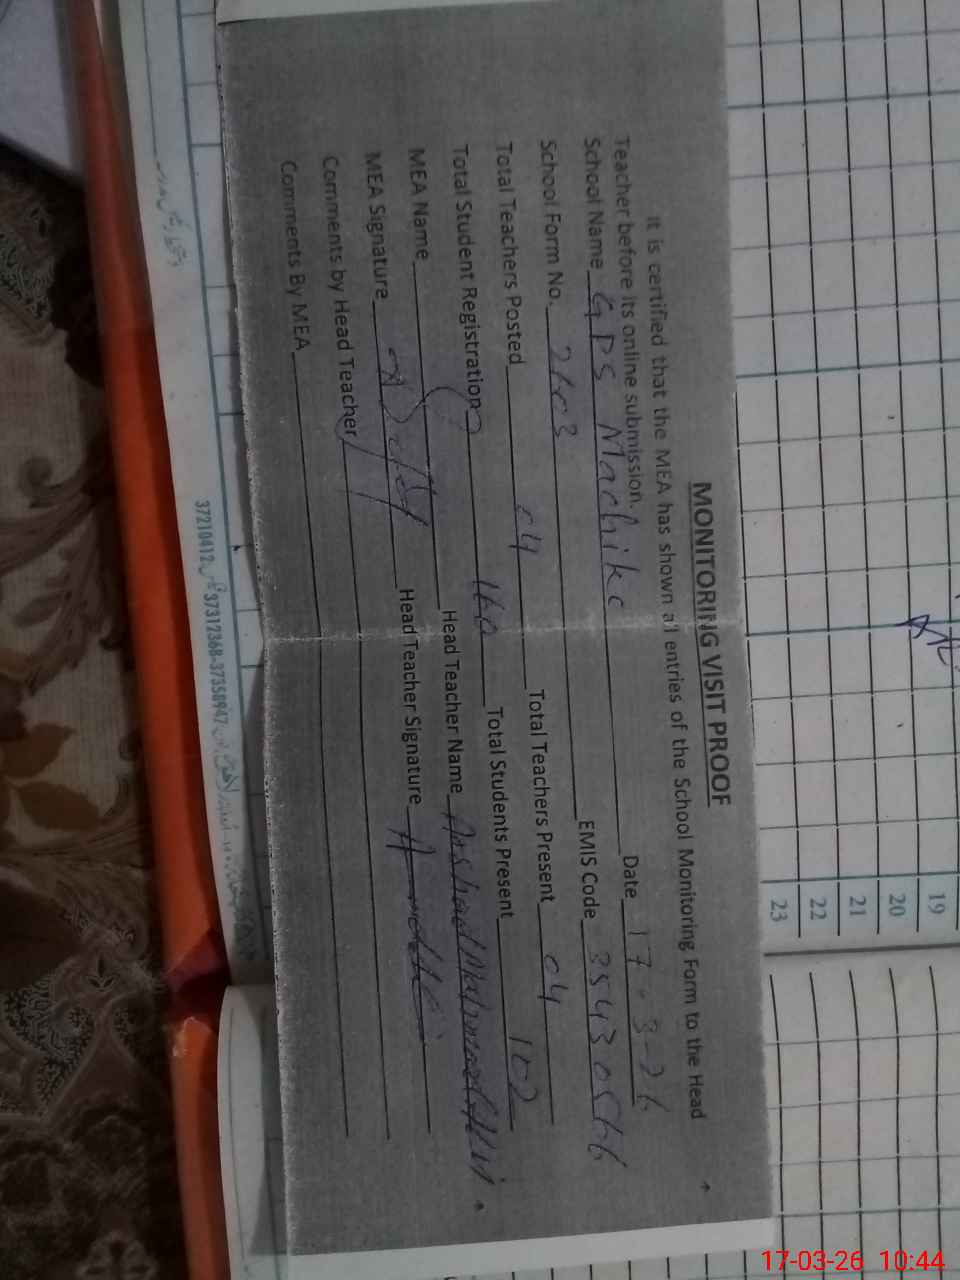 MONITORING VISIT PROOF
It is certified that the MEA has shown all entries of the School Monitoring Form to the Head
Teacher before its online submission.
School Name GPS Machike Date 17-3-26
School Form No. 2603 EMIS Code 35430566
Total Teachers Posted 04 Total Teachers Present 04
Total Student Registration 160 Total Students Present 102
MEA Name Head Teacher Name Arshad Mehmood
MEA Signature Head Teacher Signature
Comments by Head Teacher
Comments By MEA
19
20
21
22
23
37210412 37312368-37358947
17-03-26 10:44